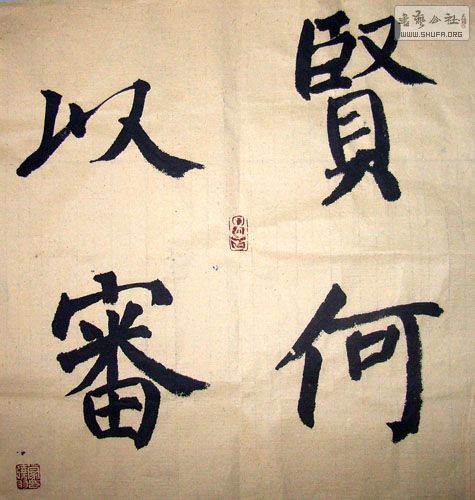 賢何
以審
書藝公社
WWW.SHUFA.ORG